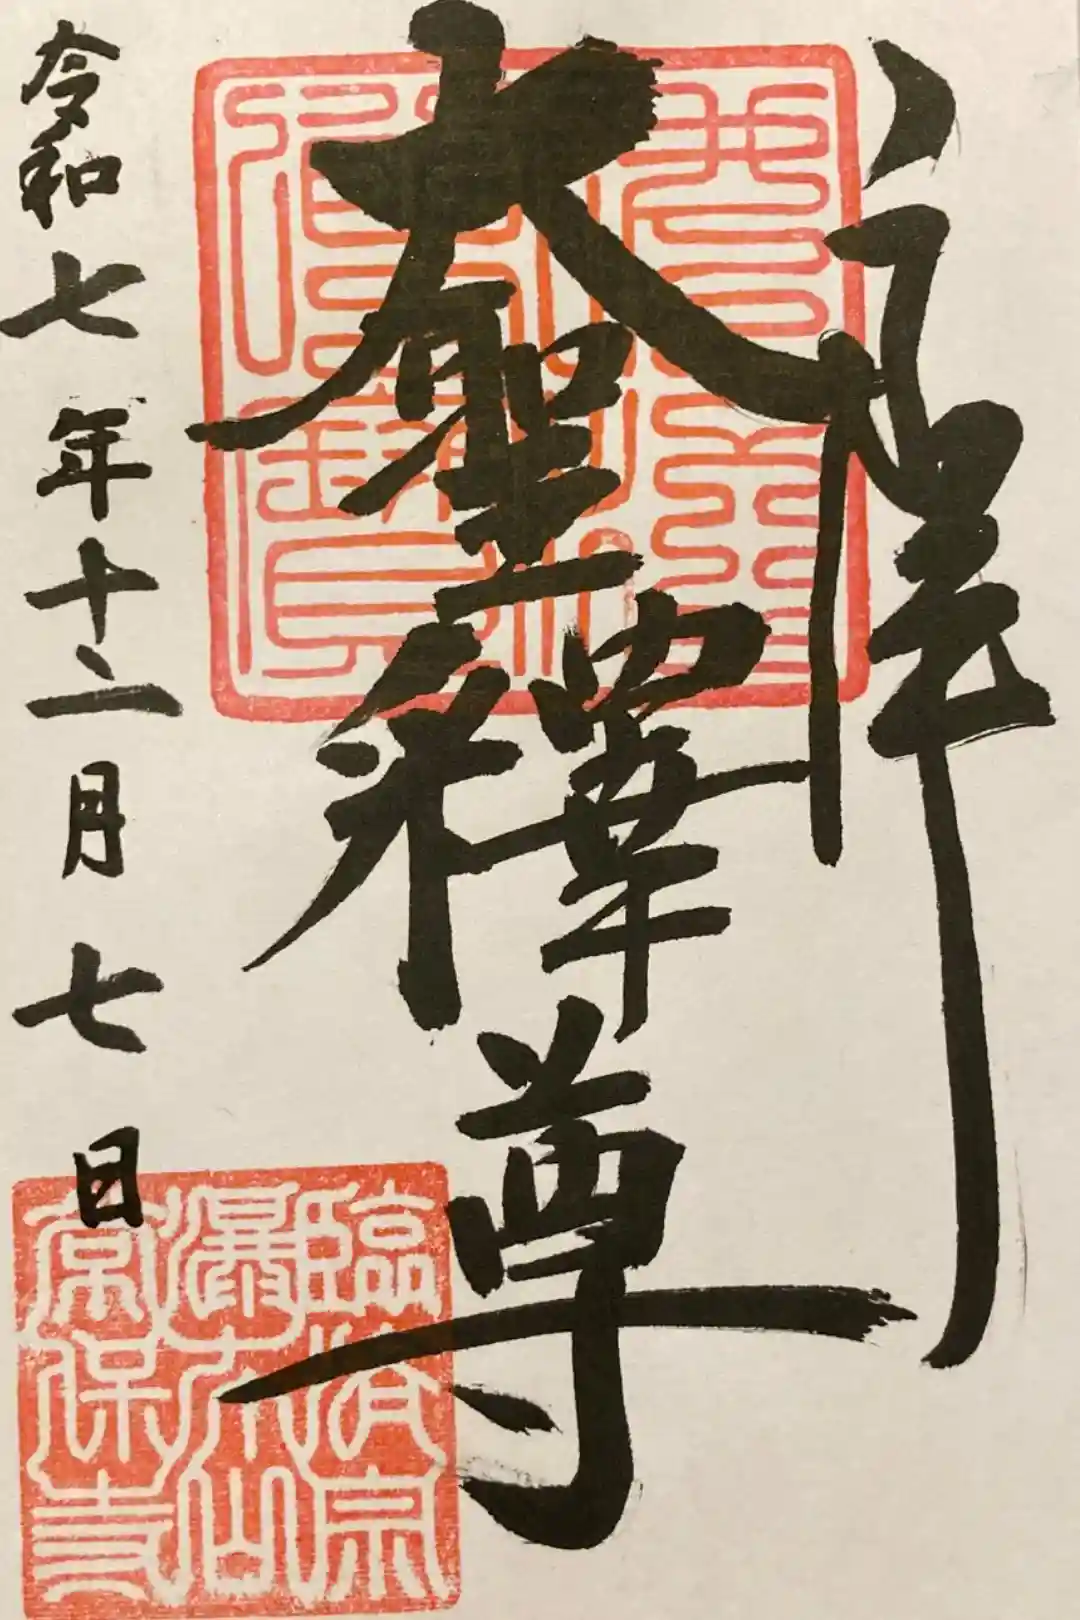 大聖釋尊
令和七年十二月七日
臨済宗
瀑布山
常保寺